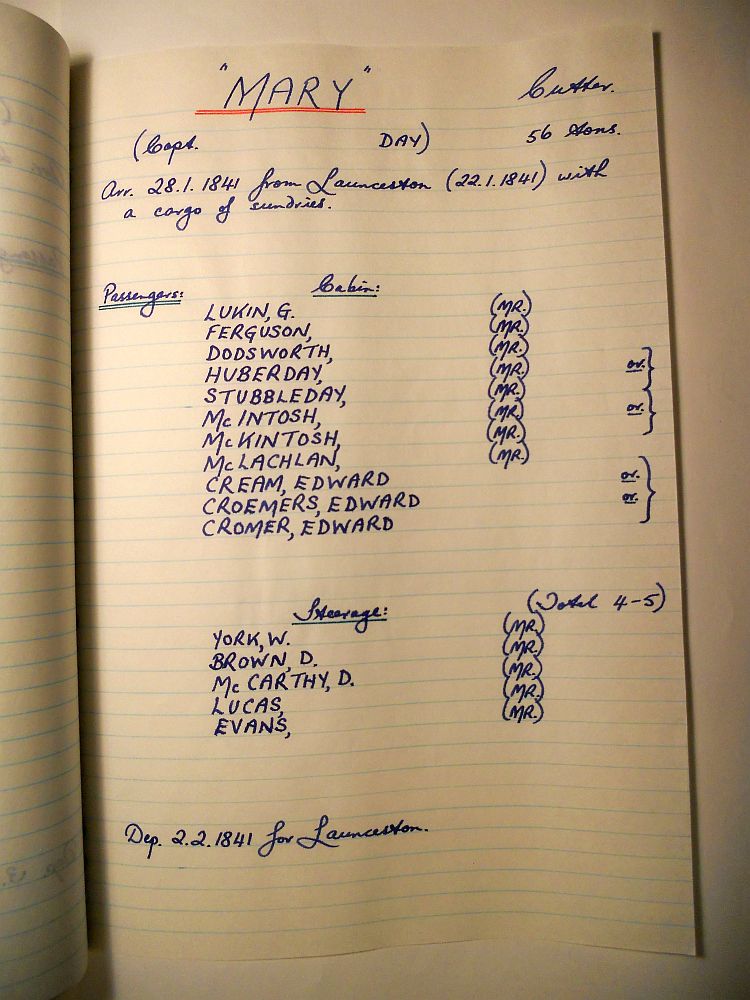 "MARY" Cutter.
(Capt. DAY) 56 tons.
Arr. 28.1.1841 from Launceston (22.1.1841) with
a cargo of sundries.
Passengers: Cabin:
LUKIN, G. (MR.)
FERGUSON, (MR.)
DODSWORTH, (MR.)
HUBERDAY, (MR.) or. }
STUBBLEDAY, (MR.)
McINTOSH, (MR.) or. }
McKINTOSH, (MR.)
McLACHLAN, (MR.)
CREAM, EDWARD or.
CROEMERS, EDWARD or. }
CROMER, EDWARD
Steerage: (Total 4-5)
YORK, W. (MR.)
BROWN, D. (MR.)
McCARTHY, D. (MR.)
LUCAS, (MR.)
EVANS, (MR.)
Dep. 2.2.1841 for Launceston.